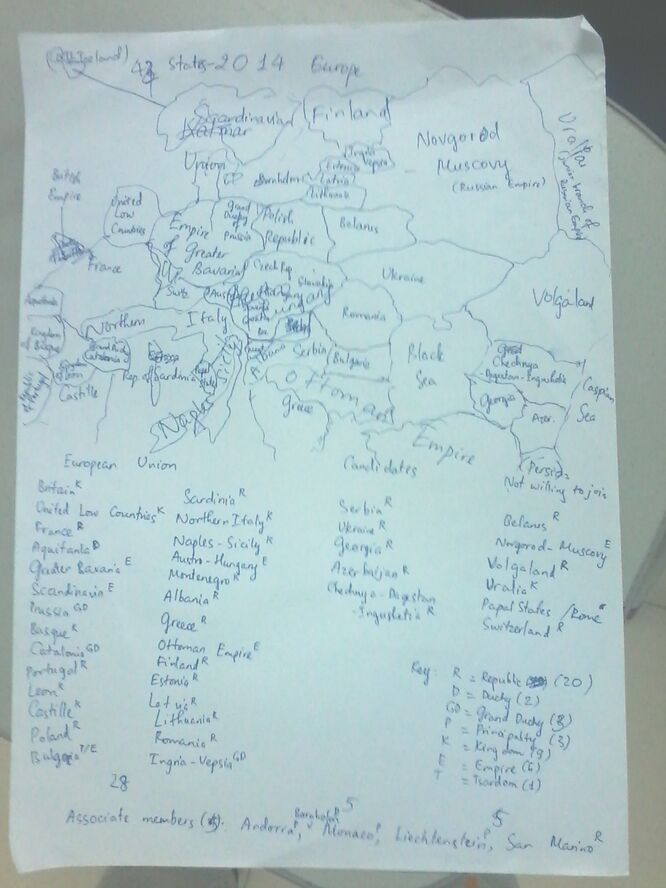 States - 2014 Europe
Scandinavian
Kalmar
Union
Finland
Novgorod
Muscovy
(Russian Empire)
Uralia
British
Empire
United
Low
Countries
Bornholm
Ingria
Vepsia
Estonia
Latvia
Lithuania
France
Empire
of Greater
Bavaria
Grand
Duchy of
Prussia
Polish
Republic
Belarus
Czech Rep
Slovakia
Ukraine
Volgaland
Switz
Northern Italy
Romania
Aquitania
Kingdom
of Basque
Republic
of Portugal
Castille
Grand Duchy
Catalonia
Rep. of Sardinia
Papal
States
Naples Sicily
Serbia
Bulgaria
Black
Sea
Chechnya
-Dagestan-Ingushetia
Georgia
Azer.
Caspian
Sea
Greece
Ottoman Empire
Persia
European Union
Britain K
United Low Countries K
France R
Aquitania D
Greater Bavaria E
Scandinavia E
Prussia GD
Basque K
Catalonia GD
Portugal R
Leon K
Castille K
Poland R
Bulgaria T/E
28
Sardinia R
Northern Italy K
Naples-Sicily K
Austro-Hungary E
Montenegro R
Albania R
Greece R
Ottoman Empire E
Finland R
Estonia R
Latvia R
Lithuania R
Romania R
Ingria-Vepsia GD
Candidates
Serbia R
Ukraine R
Georgia R
Azerbaijan R
Chechnya-Dagestan
-Ingushetia R
Not willing to join
Belarus R
Novgorod-Muscovy E
Volgaland R
Uralia K
Papal States/Rome
Switzerland R
Key: R = Republic (20)
D = Duchy (2)
GD = Grand Duchy (3)
P = Principality (3)
K = Kingdom (9)
E = Empire (6)
T = Tsardom (1)
Associate members (5): Andorra P, Bornholm P, Monaco P, Liechtenstein P, San Marino R